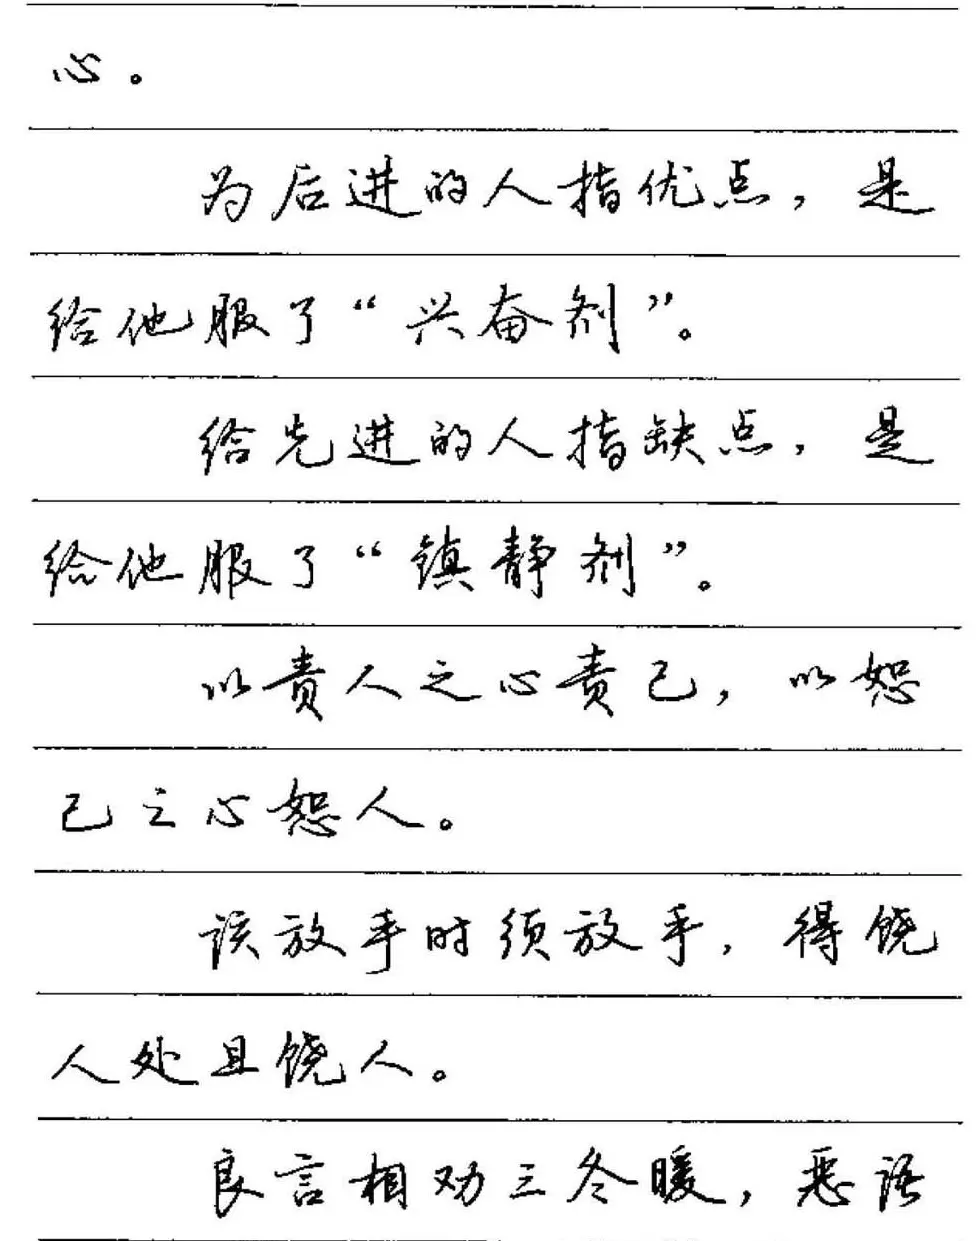 心。
为后进的人指优点，是
给他服了“兴奋剂”。
给先进的人指缺点，是
给他服了“镇静剂”。
以责人之心责己，以恕
己之心恕人。
该放手时须放手，得饶
人处且饶人。
良言相劝三冬暖，恶语